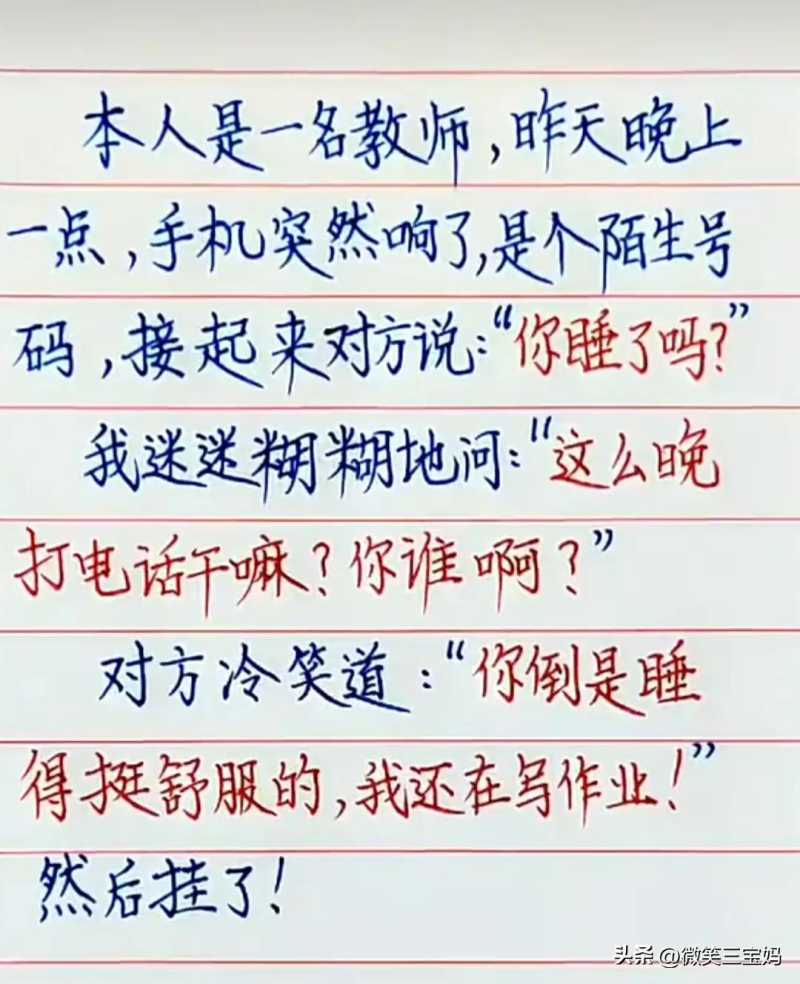 本人是一名教师,昨天晚上
一点,手机突然响了,是个陌生号
码,接起来对方说:“你睡了吗?”
我迷迷糊糊地问:“这么晚
打电话干嘛?你谁啊?”
对方冷笑道:“你倒是睡
得挺舒服的,我还在写作业!”
然后挂了!
头条 @微笑三宝妈